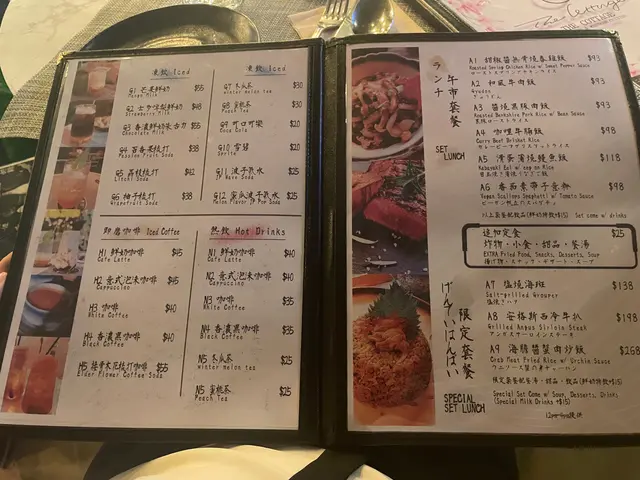 凍飲 Iced
G1 芒果鮮奶 $55
Mango Milk
$48
Strawberry Milk
G3 香濃鮮奶朱古力 $55
Chocolate Milk
G4 百香果梳打 $38
Passion Fruit Soda
G5 荔枝梳打 $42
Litchi Soda
G6 柚子梳打 $38
Grapefruit Soda
凍飲 Iced
G7 冬瓜茶 $30
Winter melon tea
G8 蜜桃茶 $30
Peach Tea
G9 可口可樂 $20
Coca Cola
G10 雪碧 $20
Sprite
G11 波子汽水 $25
JP Wave Soda
G12 蜜瓜波子汽水 $25
Melon Flavor JP Pop Soda
即磨咖啡 Iced Coffee
H1 鮮奶咖啡 $45
Cafe Latte
H2 意式泡沫咖啡 $45
Cappuccino
H3 咖啡 $40
White Coffee
H4 香濃黑咖啡 $40
Black Coffee
H5 接骨木花梳打咖啡 $55
Elder Flower Coffee Soda
熱飲 Hot Drinks
N1 鮮奶咖啡 $40
Cafe Latte
N2 意式泡沫咖啡 $40
Cappuccino
N3 咖啡 $35
White Coffee
N4 香濃黑咖啡 $35
Black Coffee
N5 冬瓜茶 $25
Winter melon tea
N5 蜜桃茶 $25
Peach Tea
ランチ
午市套餐
SET LUNCH
A1 $93
Roasted Spring Chicken Rice w/ Sweet Pepper Sauce
A2 和風牛肉飯 $93
Gyudon
ぎゅうどん
A3 醬燒黑豚肉飯 $93
Roasted Berkshire Pork Rice w/ Bean Sauce
A4 咖喱牛腩飯 $98
Curry Beef Brisket Rice
A5 滑蛋蒲燒鰻魚飯 $118
Kabayaki Eel w/ egg on Rice
A6 番茄素帶子意粉 $98
Vegan Scallions Spaghetti w/ Tomato Sauce
以上套餐配飲品(鮮奶特飲+$15) Set come w/ drinks
追加定食 $25
炸物・小食・甜品・餐湯
EXTRA Fried Food, Snacks, Desserts, Soup
揚げ物・スナック・デザート・スープ
げんていはんばい
限定套餐
SPECIAL SET LUNCH
A7 鹽燒海斑 $138
Salt-grilled Grouper
A8 安格斯西冷牛扒 $198
Grilled Angus Sirloin Steak
アンガスサーロインステーキ
A9 海膽蟹肉炒飯 $268
Crab Meat Fried Rice w/ Urchin Sauce
限定套餐配餐湯・甜品・飲品(鮮奶特飲+$15)
Special Set Come w/ Soup, Desserts, Drinks
(Special Milk Drinks +$15)